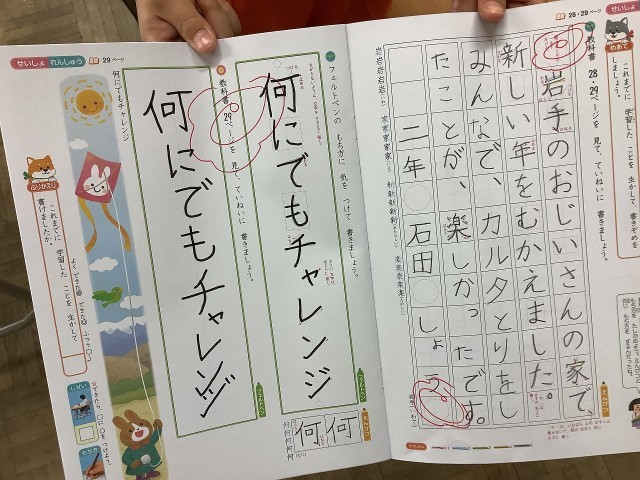 せいしょ
28・29ページ
めあて
これまでに 学習した
ことを 生かして、書きぞめを
しましょう。
教科書 28・29ページを 見て、ていねいに 書きましょう。
岩手のおじいさんの家で、
新しい年をむかえました。
みんなで、カルタとりをし
たことが、楽しかったです。
二年 石田 しょ
えんぴつ
せいしょ れんしゅう 29ページ
フェルトペンの もち方に 気を つけて 書きましょう。
何にでもチャレンジ
フェルトペン
えんぴつ
何何
何何何何何
教科書 29ページを 見て、ていねいに 書きましょう。
何にでもチャレンジ
フェルトペン
何にでもチャレンジ
ふりかえり
これまでに 学習した ことを 生かして
書けましたか。
よく できた できた ふつう
しせい
もち方
できたら、□に ○を つけよう。